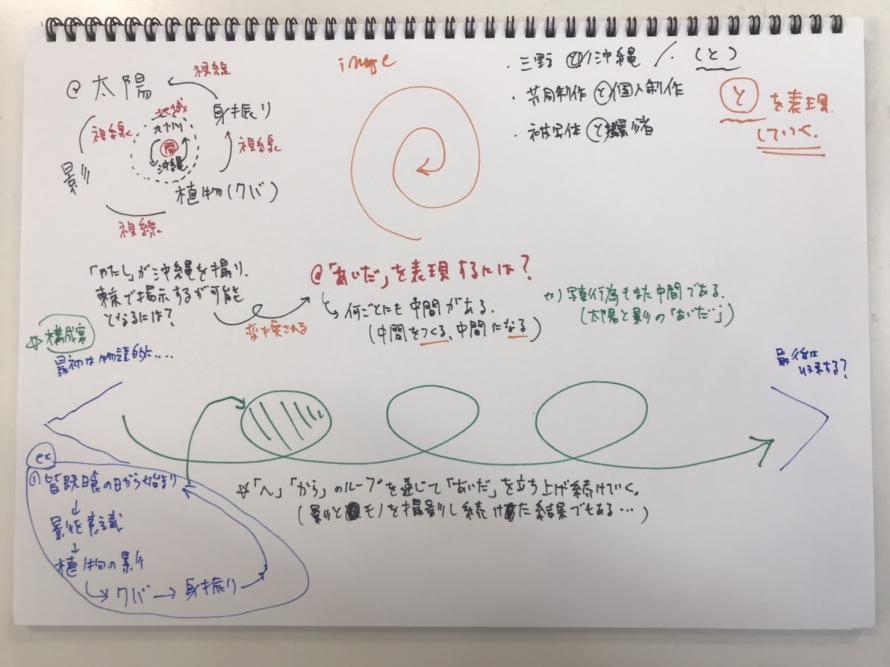 @太陽
視線
身振り
視線
影
視線
地域
間
沖縄
視線
植物(クバ)
image
・三野と沖縄 /・(と)
・共同制作と個人制作
・被写体と撮影者
と を表現
していく。
「わたし」が沖縄を撮り、
東京で提示するが可能
となるには?
変換される
@「あいだ」を表現するには?
↳ 何ごとにも中間がある。
(中間をつくる、中間になる)
写真行為もまた中間である。
(太陽と影の「あいだ」)
☆構成案
最初は物語的に....
最後は
収束する?
ex
① 皆既日食の日から始まり
↓
影を意識
↓
植物の影
↳ クバ → 身振り
☆「へ」「から」のループを通じて「あいだ」を立ち上げ続けていく。
(影とモノを撮影し続けた結果でもある…)